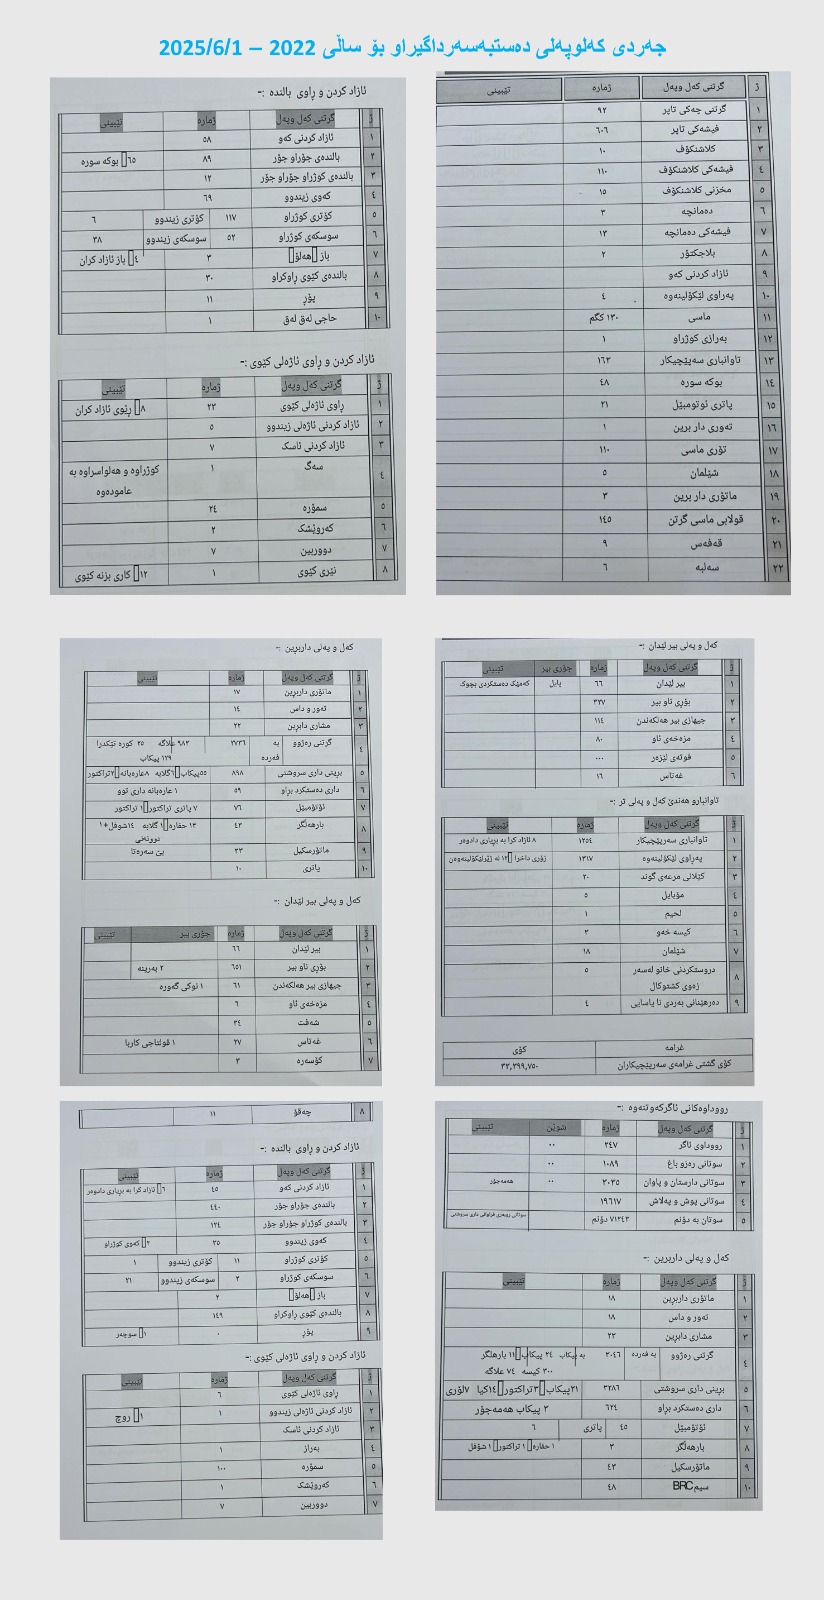 جەردی کەلوپەلی دەستبەسەرداگیراو بۆ ساڵی 2022 – 2025/6/1
ژ گرتنی کەل وپەل ژمارە تێبینی
١ گرتنی چەکی تاپر ٩٢
٢ فیشەکی تاپر ٦٠٦
٣ کلاشنکۆف ١٠
٤ فیشەکی کلاشنکۆف ١١٠
٥ مخزنی کلاشنکۆف ١٥
٦ دەمانچە ٣
٧ فیشەکی دەمانچە ١٣
٨ بلاجکتۆر ٢
٩ ئازاد کردنی کەو
١٠ پەراوی لێکۆلینەوە ٤
١١ ماسی ١٣٠ کگم
١٢ بەرازی کوژراو ١
١٣ تاوانباری سەرپێچیکار ١٦٣
١٤ بوکە سورە ٤٨
١٥ پاتری ئوتومبێل ٢١
١٦ تەوری دار برین ١
١٧ تۆری ماسی ١١٠
١٨ شێلمان ٥
١٩ ماتۆری دار برین ٣
٢٠ قولابی ماسی گرتن ١٤٥
٢١ قەفەس ٩
٢٢ سەلبە ٦
ئازاد کردن و ڕاوی بالندە :-
ژ گرتنی کەل وپەل ژمارە تێبینی
١ ئازاد کردنی کەو ٥٨
٢ بالندەی جۆراو جۆر ٨٩ ٦٥ بوکە سورە
٣ بالندەی کوژراو جۆراو جۆر ١٢
٤ کەوی زیندوو ٦٩
٥ کۆتری کوژراو ١١٧ کۆتری زیندوو ٦
٦ سوسکەی کوژراو ٥٢ سوسکەی زیندوو ٣٨
٧ باز هەلۆ ٣ ٤ باز ئازاد کران
٨ بالندەی کێوی ڕاوکراو ٣٠
٩ پۆڕ ١١
١٠ حاجی لەق لەق ١
ئازاد کردن و ڕاوی ئاژەلی کێوی :-
ژ گرتنی کەل وپەل ژمارە تێبینی
١ ڕاوی ئاژەلی کێوی ٢٣ ٨ ڕێوی ئازاد کران
٢ ئازاد کردنی ئاژەلی زیندوو ٥
٣ ئازاد کردنی ئاسک ٧
٤ سەگ ١ کوژراوە و هەلواسراوە بە
عامودەوە
٥ سمۆرە ٢٤
٦ کەروێشک ٢
٧ دووربین ٧
٨ نێری کێوی ١ ١٢ کاری بزنە کێوی
کەل و پەلی بیر لێدان :-
ژ گرتنی کەل وپەل ژمارە جۆری بیر تێبینی
١ بیر لێدان ٦٦ پایل کەمێک دەستکردی بچوک
٢ بۆری ناو بیر ٣٢٧
٣ جیهازی بیر هەلکەندن ١١٤
٤ مزەخەی ئاو ٨٠
٥ فوتەی لێزەر ٠٠٠
٦ غەتاس ١٦
تاوانبارو هەندێ کەل و پەلی تر :-
ژ گرتنی کەل وپەل ژمارە تێبینی
١ تاوانباری سەرپێچیکار ١٢٥٤ ٨ ئازاد کرا بە بڕیاری دادوەر
٢ پەراوی لێکۆلینەوە ١٣١٧ زۆری داخرا ١٢ لە ژێرلێکۆلینەوەن
٣ کێلانی مرعەی گوند ٢٠
٤ مۆبایل ٥
٥ لحیم ١
٦ کیسە خەو ٣
٧ شێلمان ١٨
٨ دروستکردنی خانو لەسەر ٥
زەوی کشتوکال
٩ دەرهێنانی بەردی نا یاسایی ٤
غرامە کۆی
کۆی گشتی غرامەی سەرپێچیکاران ٣٢,٣٩٩,٧٥٠
کەل و پەلی داربرین :-
ژ گرتنی کەل وپەل ژمارە تێبینی
١ ماتۆری داربرین ١٧
٢ تەور و داس ١٤
٣ مشاری دابرین ٢٢
٤ گرتنی رەژوو بە فەردە ٢٧٣٦ ٩٨٣ علاگە ٢٥ کورە تێکدرا
١٢٩ پیکاب
٥ برینی داری سروشتی ٨٩٨ ٥٥پیکاب ٦گلابە ٨عارەبانە ٢تراکتور
٦ داری دەستکرد براو ٥٩ ١ عارەبانە داری توو
٧ ئۆتۆمبێل ٧٦ ٧ پاتری تراکتور ١ تراکتور
٨ بارهەلگر ٤٣ ١٣ حفارە ١ گلابە ١٤شوفل+١
٩ ماتۆرسکیل ٣٣ بێ سەرەتا
١٠ پاتری ١٠
کەل و پەلی بیر لێدان :-
ژ گرتنی کەل وپەل ژمارە جۆری بیر تێبینی
١ بیر لێدان ٦٦
٢ بۆری ناو بیر ٦٥١ ٢ بەرینە
٣ جیهازی بیر هەلکەندن ٦١ ١ نوکی گەورە
٤ مزەخەی ئاو ٦
٥ شەفت ٣٤
٦ غەتاس ٢٧ ١ قولتاجی کارەبا
٧ کۆسەرە ٣
٨ چەقۆ ١١
ئازاد کردن و ڕاوی بالندە :-
ژ گرتنی کەل وپەل ژمارە تێبینی
١ ئازاد کردنی کەو ٤٥ ٦ ئازاد کرا بە بریاری دادوەر
٢ بالندەی جۆراو جۆر ٤٤٠
٣ بالندەی کوژراو جۆراو جۆر ١٢٤
٤ کەوی زیندوو ٣٥ ٢ کەوی کوژراو
٥ کۆتری کوژراو ١١ کۆتری زیندوو ١
٦ سوسکەی کوژراو ٢ سوسکەی زیندوو ٢١
٧ باز هەلۆ ٢
٨ بالندەی کێوی ڕاوکراو ١٤٩
٩ پۆڕ ٠ ١ سوچەر
ئازاد کردن و ڕاوی ئاژەلی کێوی :-
ژ گرتنی کەل وپەل ژمارە تێبینی
١ ڕاوی ئاژەلی کێوی ٦
٢ ئازاد کردنی ئاژەلی زیندوو ١ ١ روچ
٣ ئازاد کردنی ئاسک
٤ بەراز ١
٥ سمۆرە ١٠٠
٦ کەروێشک ١
٧ دووربین ٧
رووداوەکانی ئاگرکەوتنەوە :-
ژ گرتنی کەل وپەل ژمارە شوێن تێبینی
١ رووداوی ئاگر ٢٤٧ ٠٠
٢ سوتانی رەزو باغ ١٠٨٩ ٠٠
٣ سوتانی دارستان و پاوان ٣٠٣٥ ٠٠ هەمەجۆر
٤ سوتانی پوش و پەلاش ١٩٦١٧
٥ سوتان بە دۆنم ٧١٢٤٣ دۆنم سوتانی رووبەری فراوانی داری سروشتی
کەل و پەلی داربرین :-
ژ گرتنی کەل وپەل ژمارە تێبینی
١ ماتۆری داربرین ١٨
٢ تەور و داس ١٨
٣ مشاری دابرین ٢٣
٤ گرتنی رەژوو بە فەردە ٣٠٤٦ بە پیکاب ٢٤ پیکاب ١١ بارهلگر
٣٠٠ کیسە ٧٤ علاگە
٥ برینی داری سروشتی ٣٢٨٦ ٢١پیکاب ٣تراکتور ١٤کیا ٧لۆری
٦ داری دەستکرد براو ٦٢٤ ٣ پیکاب هەمەجۆر
٧ ئۆتۆمبێل ٤٥ پاتری ٦
٨ بارهەلگر ٣ ١ حفارە ١ تراکتور ١ شۆفل
٩ ماتۆرسکیل ٤٣
١٠ سیم BRC ٤٨